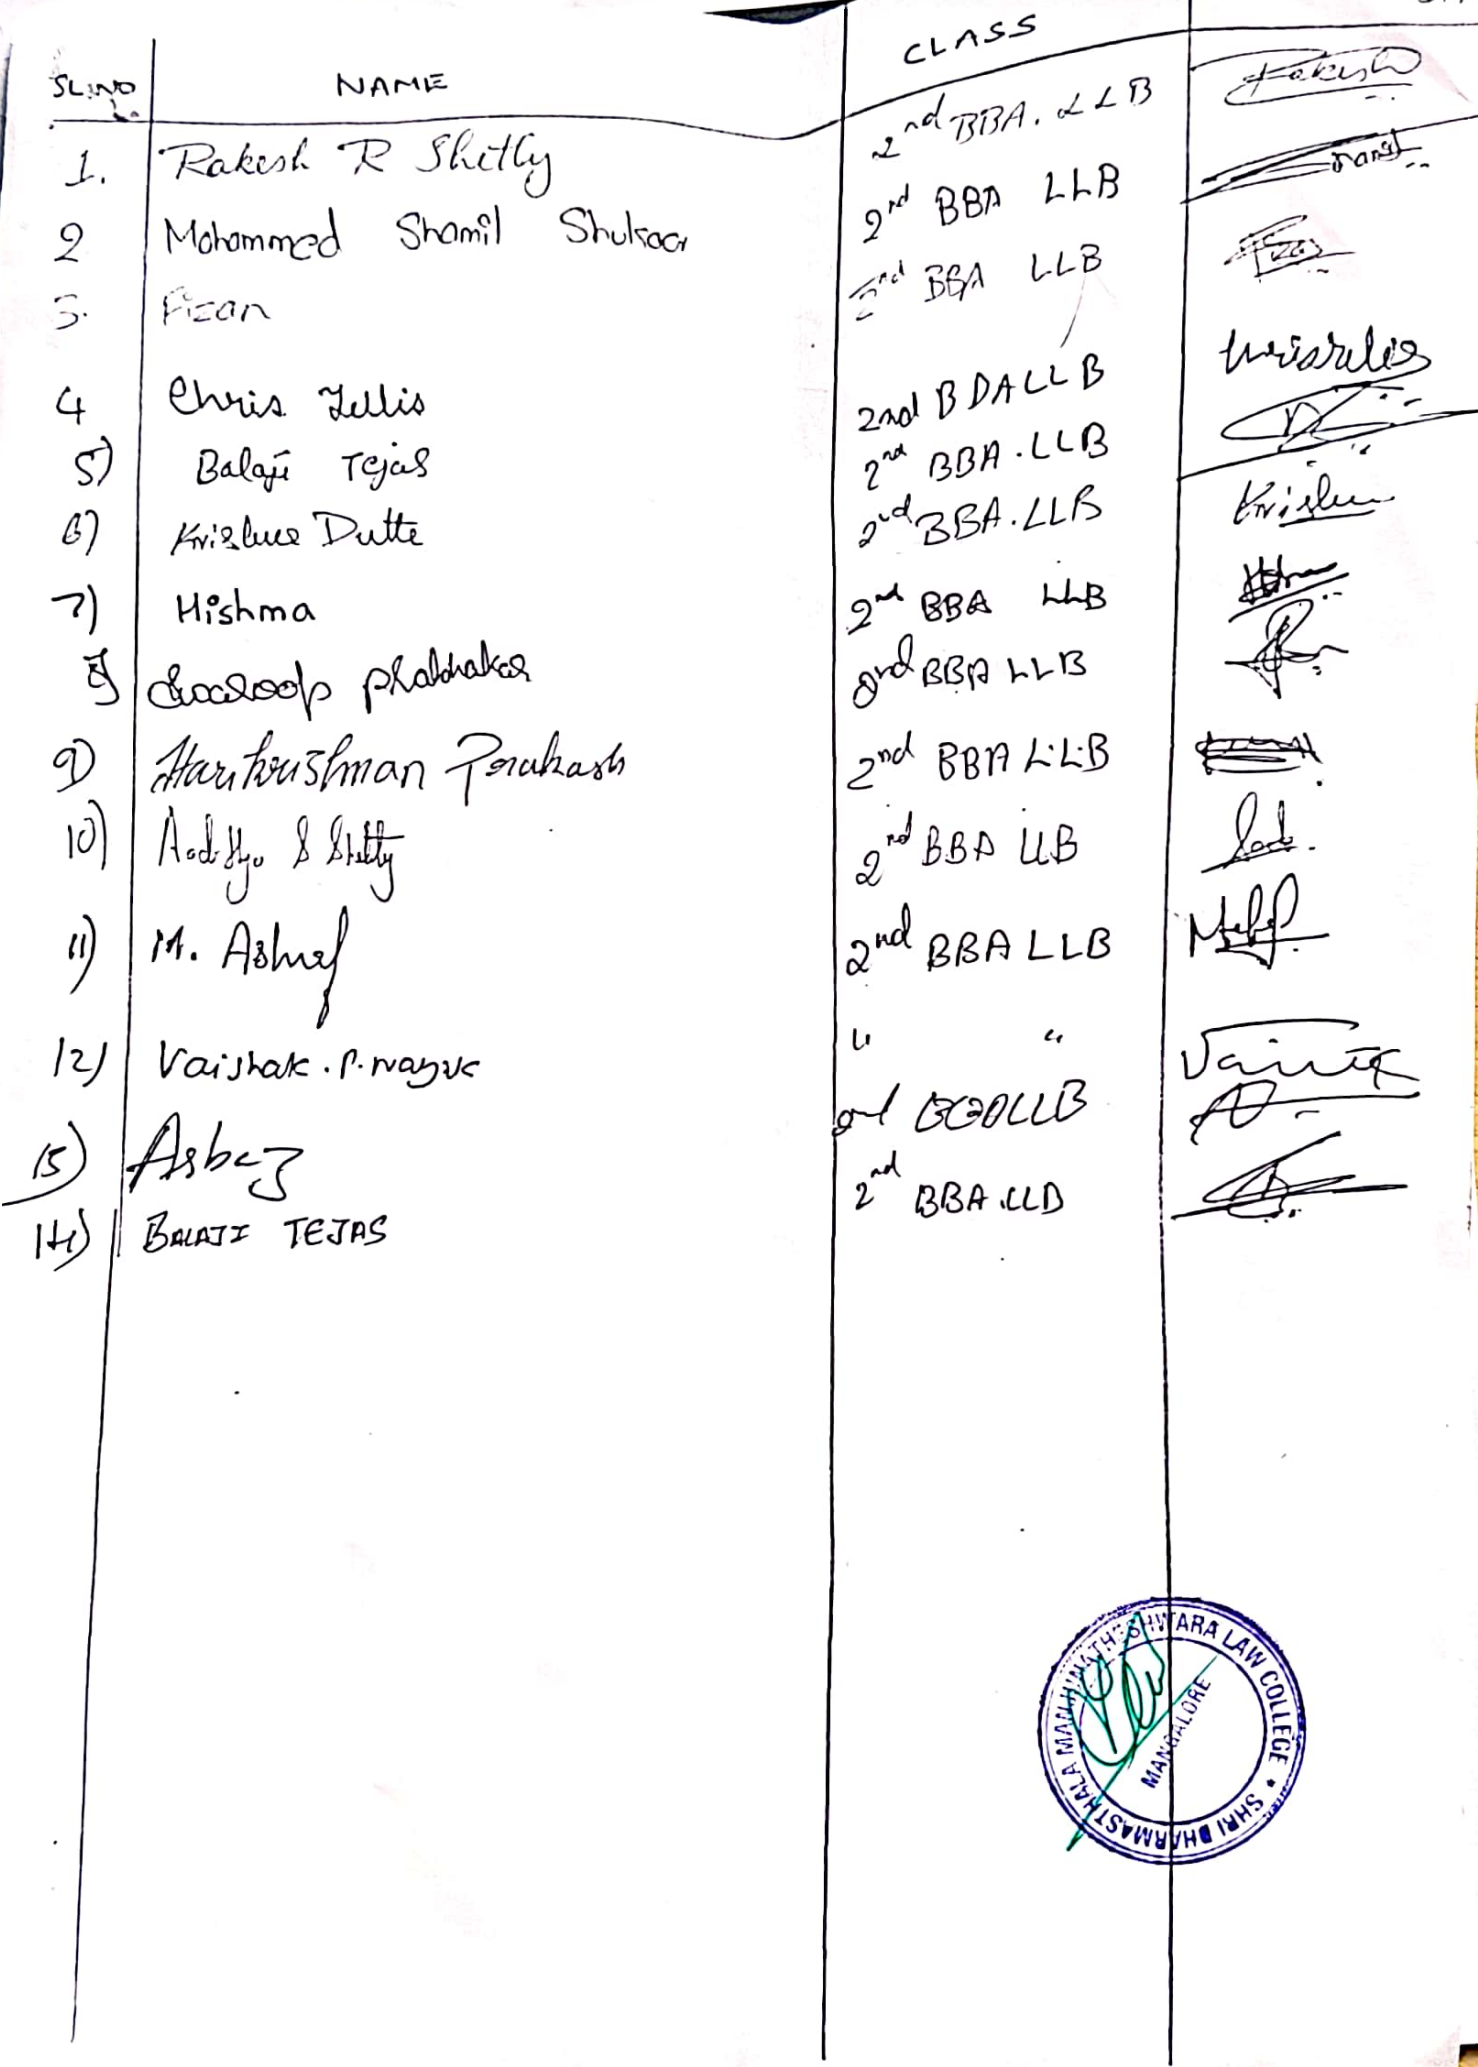 SL.NO NAME CLASS
1. Rakesh R Shetty 2nd BBA. LLB Rakesh
2 Mohammed Shamil Shukoor 2nd BBA LLB
3. Fizan 2nd BBA LLB Fizan
4 Chris Tellis 2nd BBA LLB
5) Balaji Tejas 2nd BBA.LLB
6) Krishna Dutte 2nd BBA.LLB Krishna
7) Hishma 2nd BBA LLB
8) Swaroop Phabhakar 2nd BBA LLB
9) Harikrishman Prakash 2nd BBA L.L.B
10) Aaditya S Shetty 2nd BBA LLB
11) M. Ashraf 2nd BBA LLB
12) Vaishak.P.Nayak " "
13) Asbaz 2nd BBALLB
14) BALAJI TEJAS 2nd BBA.LLB
SHRI DHARMASTHALA MANJUNATHESHWARA LAW COLLEGE *
MANGALORE